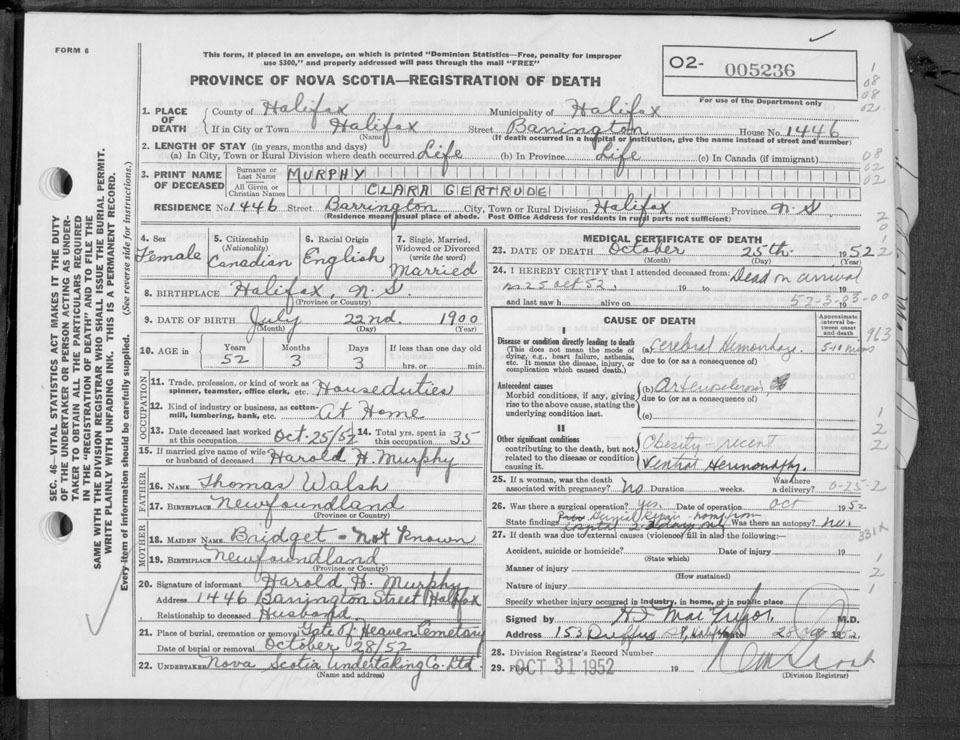 FORM 6
This form, if placed in an envelope, on which is printed "Dominion Statistics—Free, penalty for improper
use $300," and properly addressed will pass through the mail "FREE"
PROVINCE OF NOVA SCOTIA—REGISTRATION OF DEATH
O2- 005236
For use of the Department only
1. PLACE OF DEATH
County of Halifax Municipality of Halifax
If in City or Town Halifax Street Barrington House No. 1446
(Name) (If death occurred in a hospital or institution, give the name instead of street and number)
2. LENGTH OF STAY (in years, months and days)
(a) In City, Town or Rural Division where death occurred Life (b) In Province Life (c) In Canada (if immigrant)
3. PRINT NAME OF DECEASED
Surname or Last Name MURPHY
All Given or Christian Names CLARA GERTRUDE
RESIDENCE No 1446 Street Barrington City, Town or Rural Division Halifax Province N.S
(Residence means usual place of abode. Post Office Address for residents in rural parts not sufficient)
4. Sex Female
5. Citizenship (Nationality) Canadian
6. Racial Origin English
7. Single, Married, Widowed or Divorced (write the word) Married
8. BIRTHPLACE Halifax, N.S.
(Province or Country)
9. DATE OF BIRTH July 22nd. 1900
(Month) (Day) (Year)
10. AGE in Years 52 Months 3 Days 3 If less than one day old
hrs. or min.
OCCUPATION
11. Trade, profession, or kind of work as spinner, teamster, office clerk, etc. Houseduties
12. Kind of industry or business, as cotton-mill, lumbering, bank, etc. At Home
13. Date deceased last worked at this occupation Oct. 25/52 14. Total yrs. spent in this occupation 35
15. If married give name of wife or husband of deceased Harold H. Murphy
FATHER
16. NAME Thomas Walsh
17. BIRTHPLACE Newfoundland
(Province or Country)
MOTHER
18. MAIDEN NAME Bridget - Not Known
19. BIRTHPLACE Newfoundland
(Province or Country)
20. Signature of informant Harold H. Murphy
Address 1446 Barrington Street Halifax
Relationship to deceased Husband
21. Place of burial, cremation or removal Gate of Heaven Cemetary
Date of burial or removal October 28/52
22. UNDERTAKER Nova Scotia Undertaking Co. Ltd.
(Name and address)
MEDICAL CERTIFICATE OF DEATH
23. DATE OF DEATH October 25th. 1952
(Month) (Day) (Year)
24. I HEREBY CERTIFY that I attended deceased from: Dead on arrival
25 Oct 52. 19 to 19
and last saw h alive on 19
52-3-83-00
CAUSE OF DEATH
Approximate interval between onset and death
I
Disease or condition directly leading to death
(This does not mean the mode of dying, e.g., heart failure, asthenia, etc. It means the disease, injury, or complication which caused death.)
(a) Cerebral Hemorrhage. 5-10 mins
due to (or as a consequence of)
Antecedent causes
Morbid conditions, if any, giving rise to the above cause, stating the underlying condition last.
(b) Arteriosclerosis
due to (or as a consequence of)
(c)
II
Other significant conditions
contributing to the death, but not related to the disease or condition causing it.
Obesity - recent
Ventral Herniorraphy.
25. If a woman, was the death associated with pregnancy? No Duration weeks. Was there a delivery?
0-25-2
26. Was there a surgical operation? yes. Date of operation Oct 1952
State findings Hernia Repair - home from hospital 2 days only Was there an autopsy? No.
27. If death was due to external causes (violence) fill in also the following:—
Accident, suicide or homicide? Date of injury 19
(State which)
Manner of injury
(How sustained)
Nature of injury
Specify whether injury occurred in industry, in home, or in public place
Signed by M.D.
Address 153 Duffus St, Halifax Date 28 Oct 1952.
28. Division Registrar's Record Number
29. Filed OCT 31 1952 19
(Division Registrar)
SEC. 46—VITAL STATISTICS ACT MAKES IT THE DUTY
OF THE UNDERTAKER OR PERSON ACTING AS UNDER-
TAKER TO OBTAIN ALL THE PARTICULARS REQUIRED
IN THE "REGISTRATION OF DEATH" AND TO FILE THE
SAME WITH THE DIVISION REGISTRAR WHO SHALL ISSUE THE BURIAL PERMIT.
WRITE PLAINLY WITH UNFADING INK. THIS IS A PERMANENT RECORD.
Every item of information should be carefully supplied. (See reverse side for instructions.)
1
08
08
02
08
02
02
2
0
1
2
963
2
2
331X
1
2
1